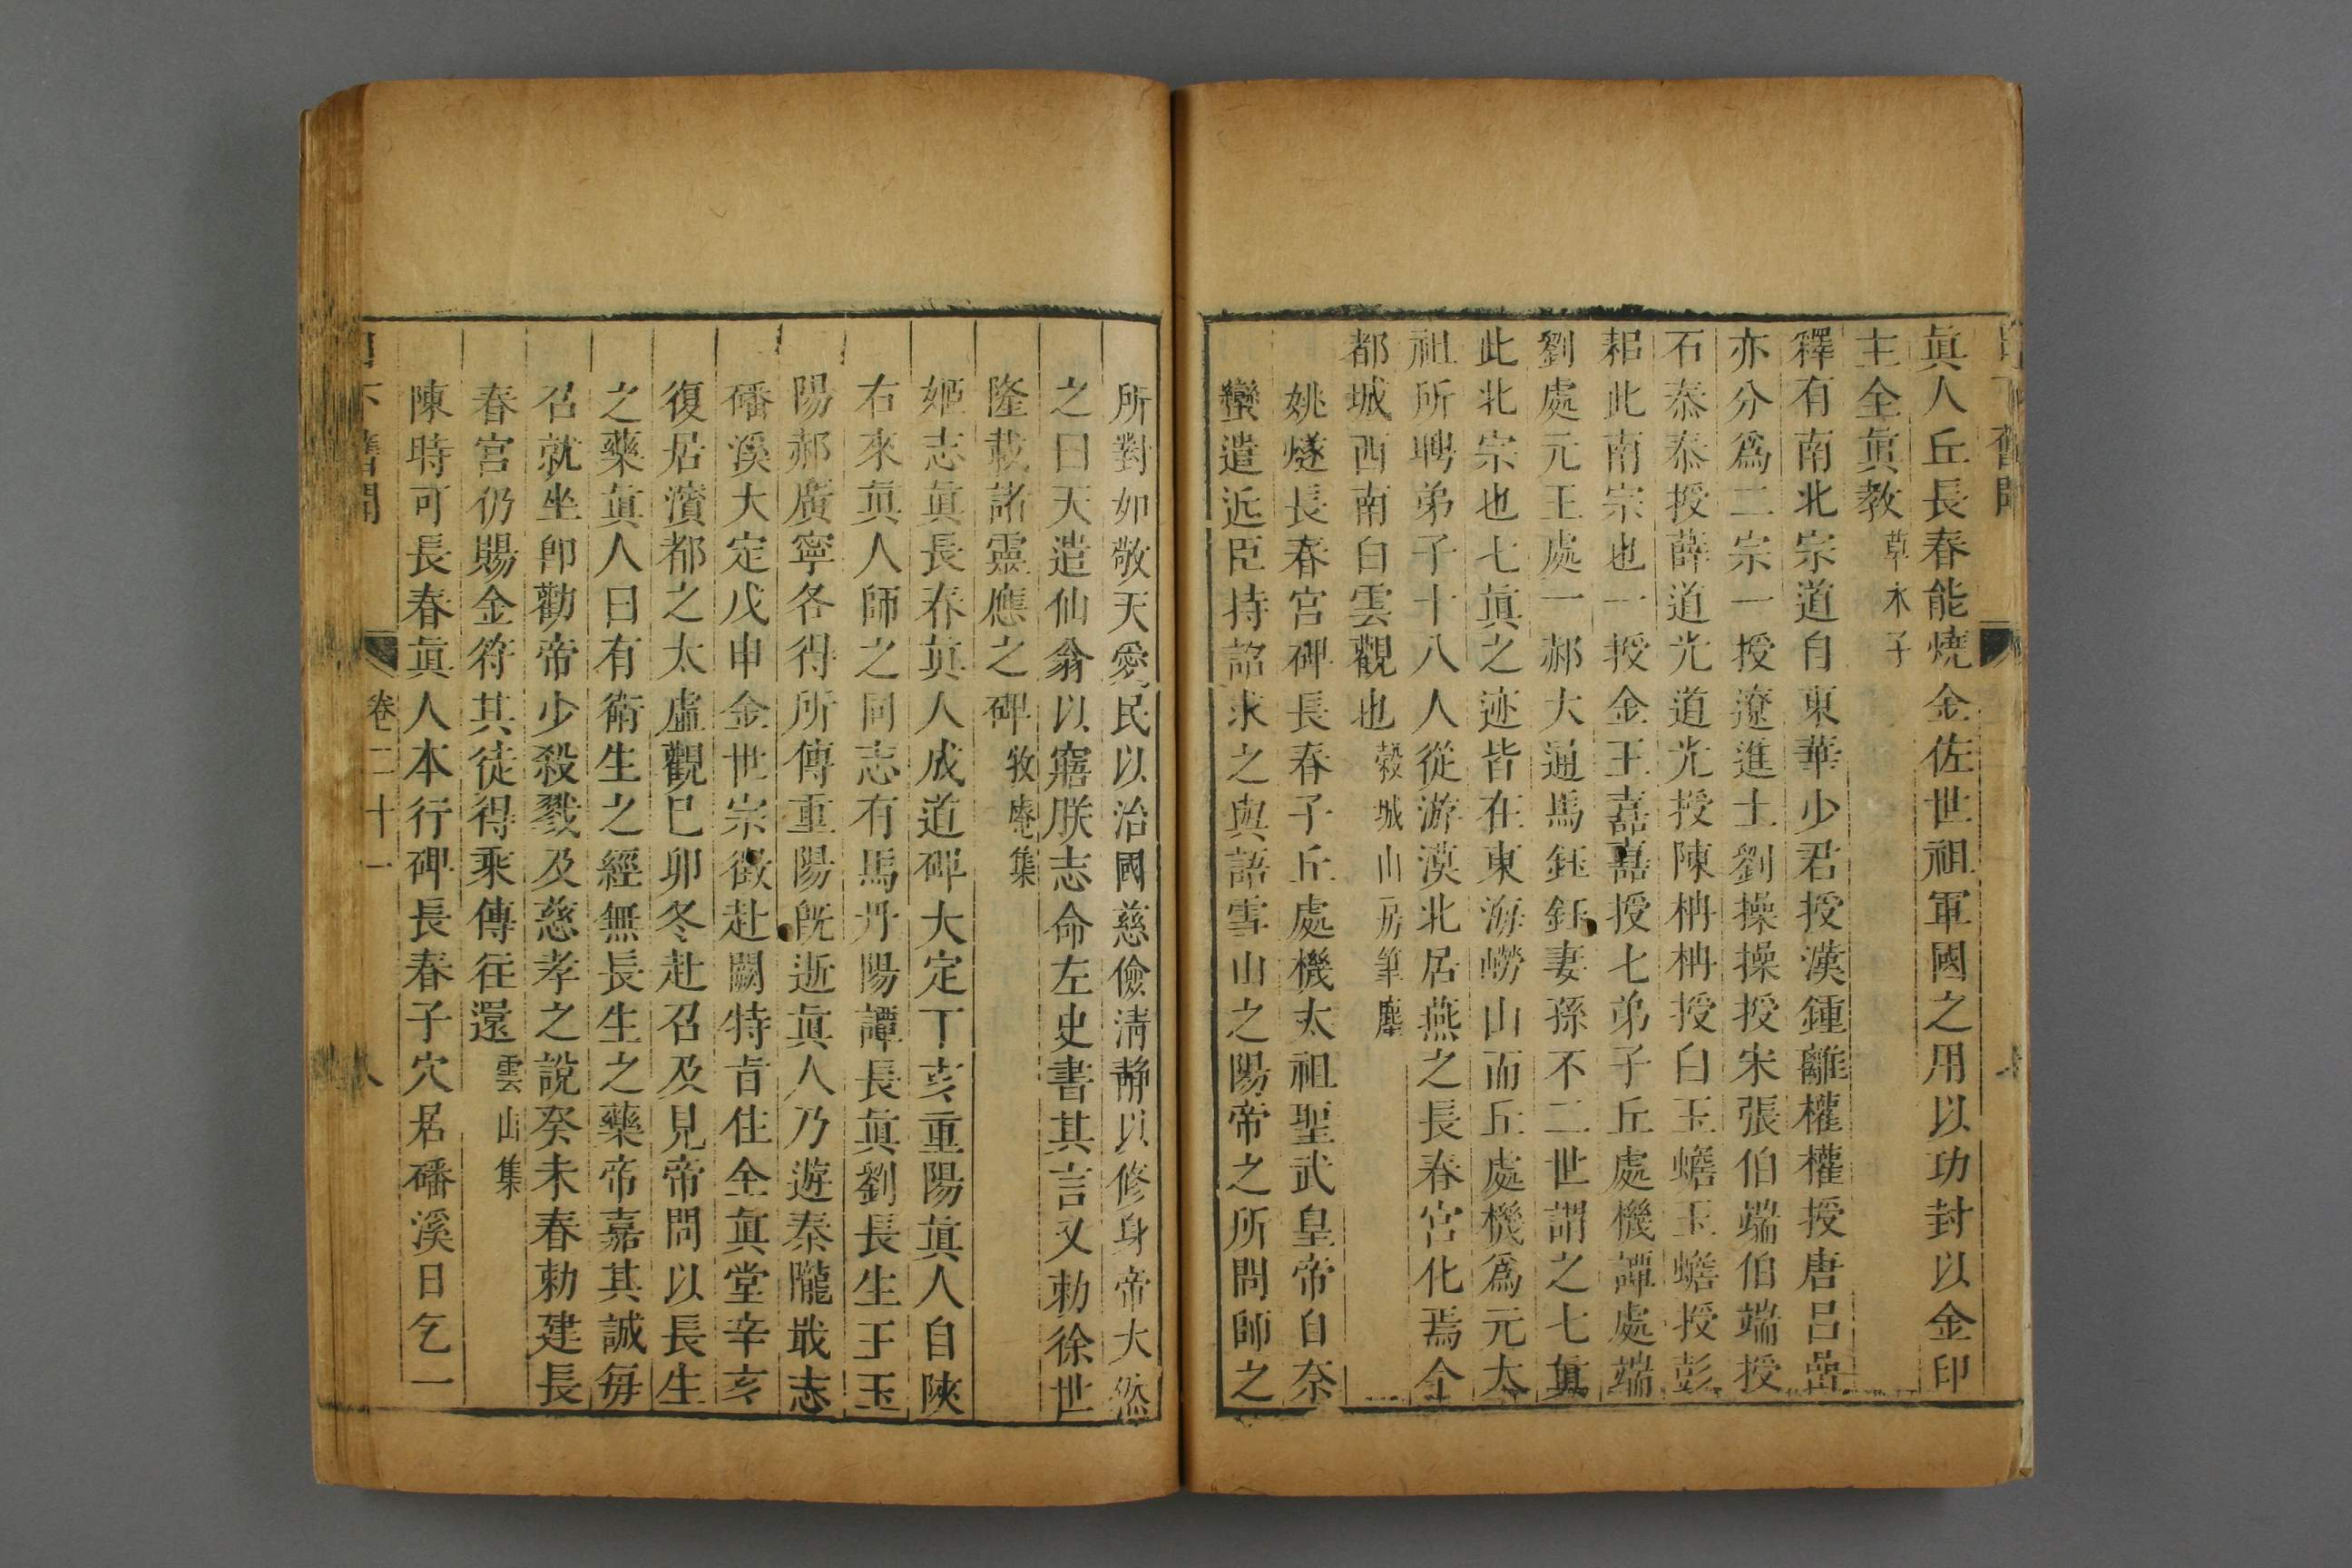 眞人丘長春能燒金佐世祖軍國之用以功封以金印
主全眞教草木子
釋有南北宗道自東華少君授漢鍾離權權授唐呂嵒
亦分爲二宗一授遼進士劉操操授宋張伯端伯端授
石泰泰授薛道光道光授陳柟柟授白玉蟾玉蟾授彭
耜此南宗也一授金王嚞嚞授七弟子丘處機譚處端
劉處元王處一郝大通馬鈺鈺妻孫不二世謂之七眞
此北宗也七眞之迹皆在東海嶗山而丘處機爲元太
祖所聘弟子十八人從游漠北居燕之長春宮化焉今
都城西南白雲觀也穀城山房筆麈
姚燧長春宮碑長春子丘處機太祖聖武皇帝自奈
蠻遣近臣持詔求之與語雪山之陽帝之所問師之
所對如敬天愛民以治國慈儉淸靜以修身帝大然
之曰天遣仙翁以寤朕志命左史書其言又勅徐世
隆載諸靈應之碑牧庵集
姬志眞長春眞人成道碑大定丁亥重陽眞人自陝
右來眞人師之同志有馬丹陽譚長眞劉長生王玉
陽郝廣寧各得所傳重陽旣逝眞人乃遊秦隴戢志
磻溪大定戊申金世宗徵赴闕特旨住全眞堂辛亥
復居濱都之太虛觀巳卯冬赴召及見帝問以長生
之藥眞人曰有衛生之經無長生之藥帝嘉其誠每
召就坐卽勸帝少殺戮及慈孝之說癸未春勅建長
春宮仍賜金符其徒得乘傳往還雲山集
陳時可長春眞人本行碑長春子穴居磻溪日乞一
卷二十一